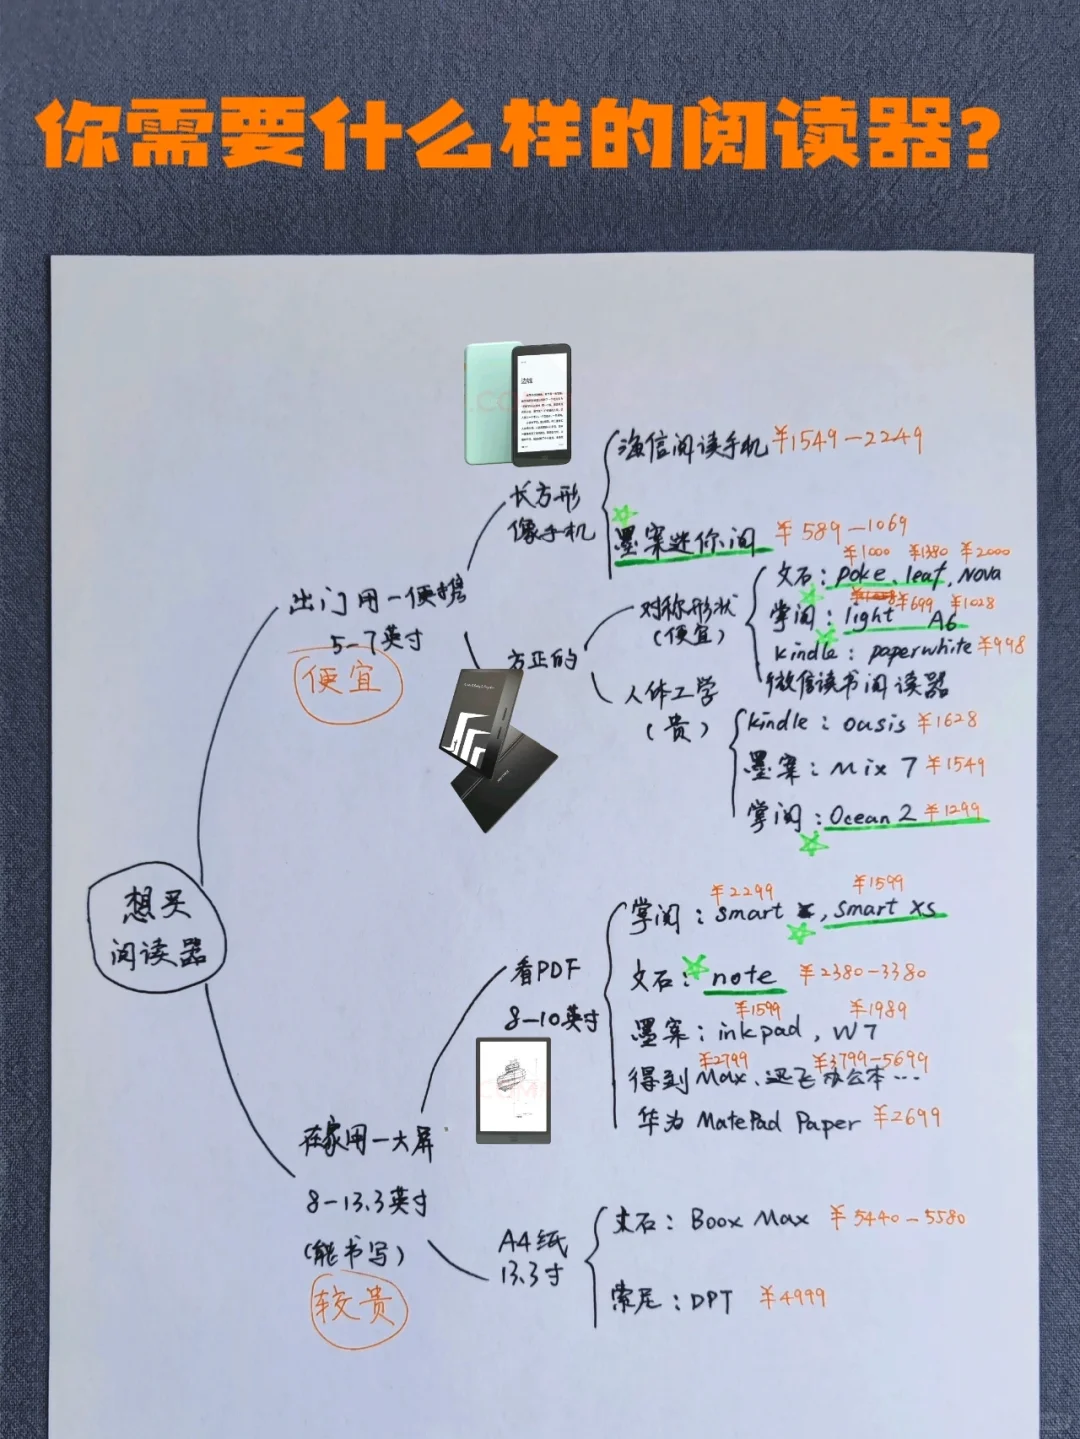 你需要什么样的阅读器?
海信阅读手机 ¥1549-2249
长方形
像手机
墨案迷你阅 ¥589-1069
¥1000 ¥1380 ¥2000
文石: poke、leaf、Nova
出门用-便携
5-7英寸
便宜
方正的
对称形状
(便宜)
¥699 ¥1028
掌阅: light A6
kindle: paperwhite ¥998
微信读书阅读器
人体工学
(贵)
kindle: oasis ¥1628
墨案: Mix 7 ¥1549
掌阅: Ocean 2 ¥1299
想买
阅读器
¥2299 ¥1599
掌阅: smart , smart xs
看PDF
8-10英寸
文石: note ¥2380-3380
¥1599 ¥1989
墨案: inkpad, W7
¥2799 ¥3799-5699
得到Max、迅飞办公本…
华为 MatePad Paper ¥2699
在家用-大屏
8-13.3英寸
(能书写)
较贵
A4纸
13.3寸
文石: Boox Max ¥5440-5580
索尼: DPT ¥4999